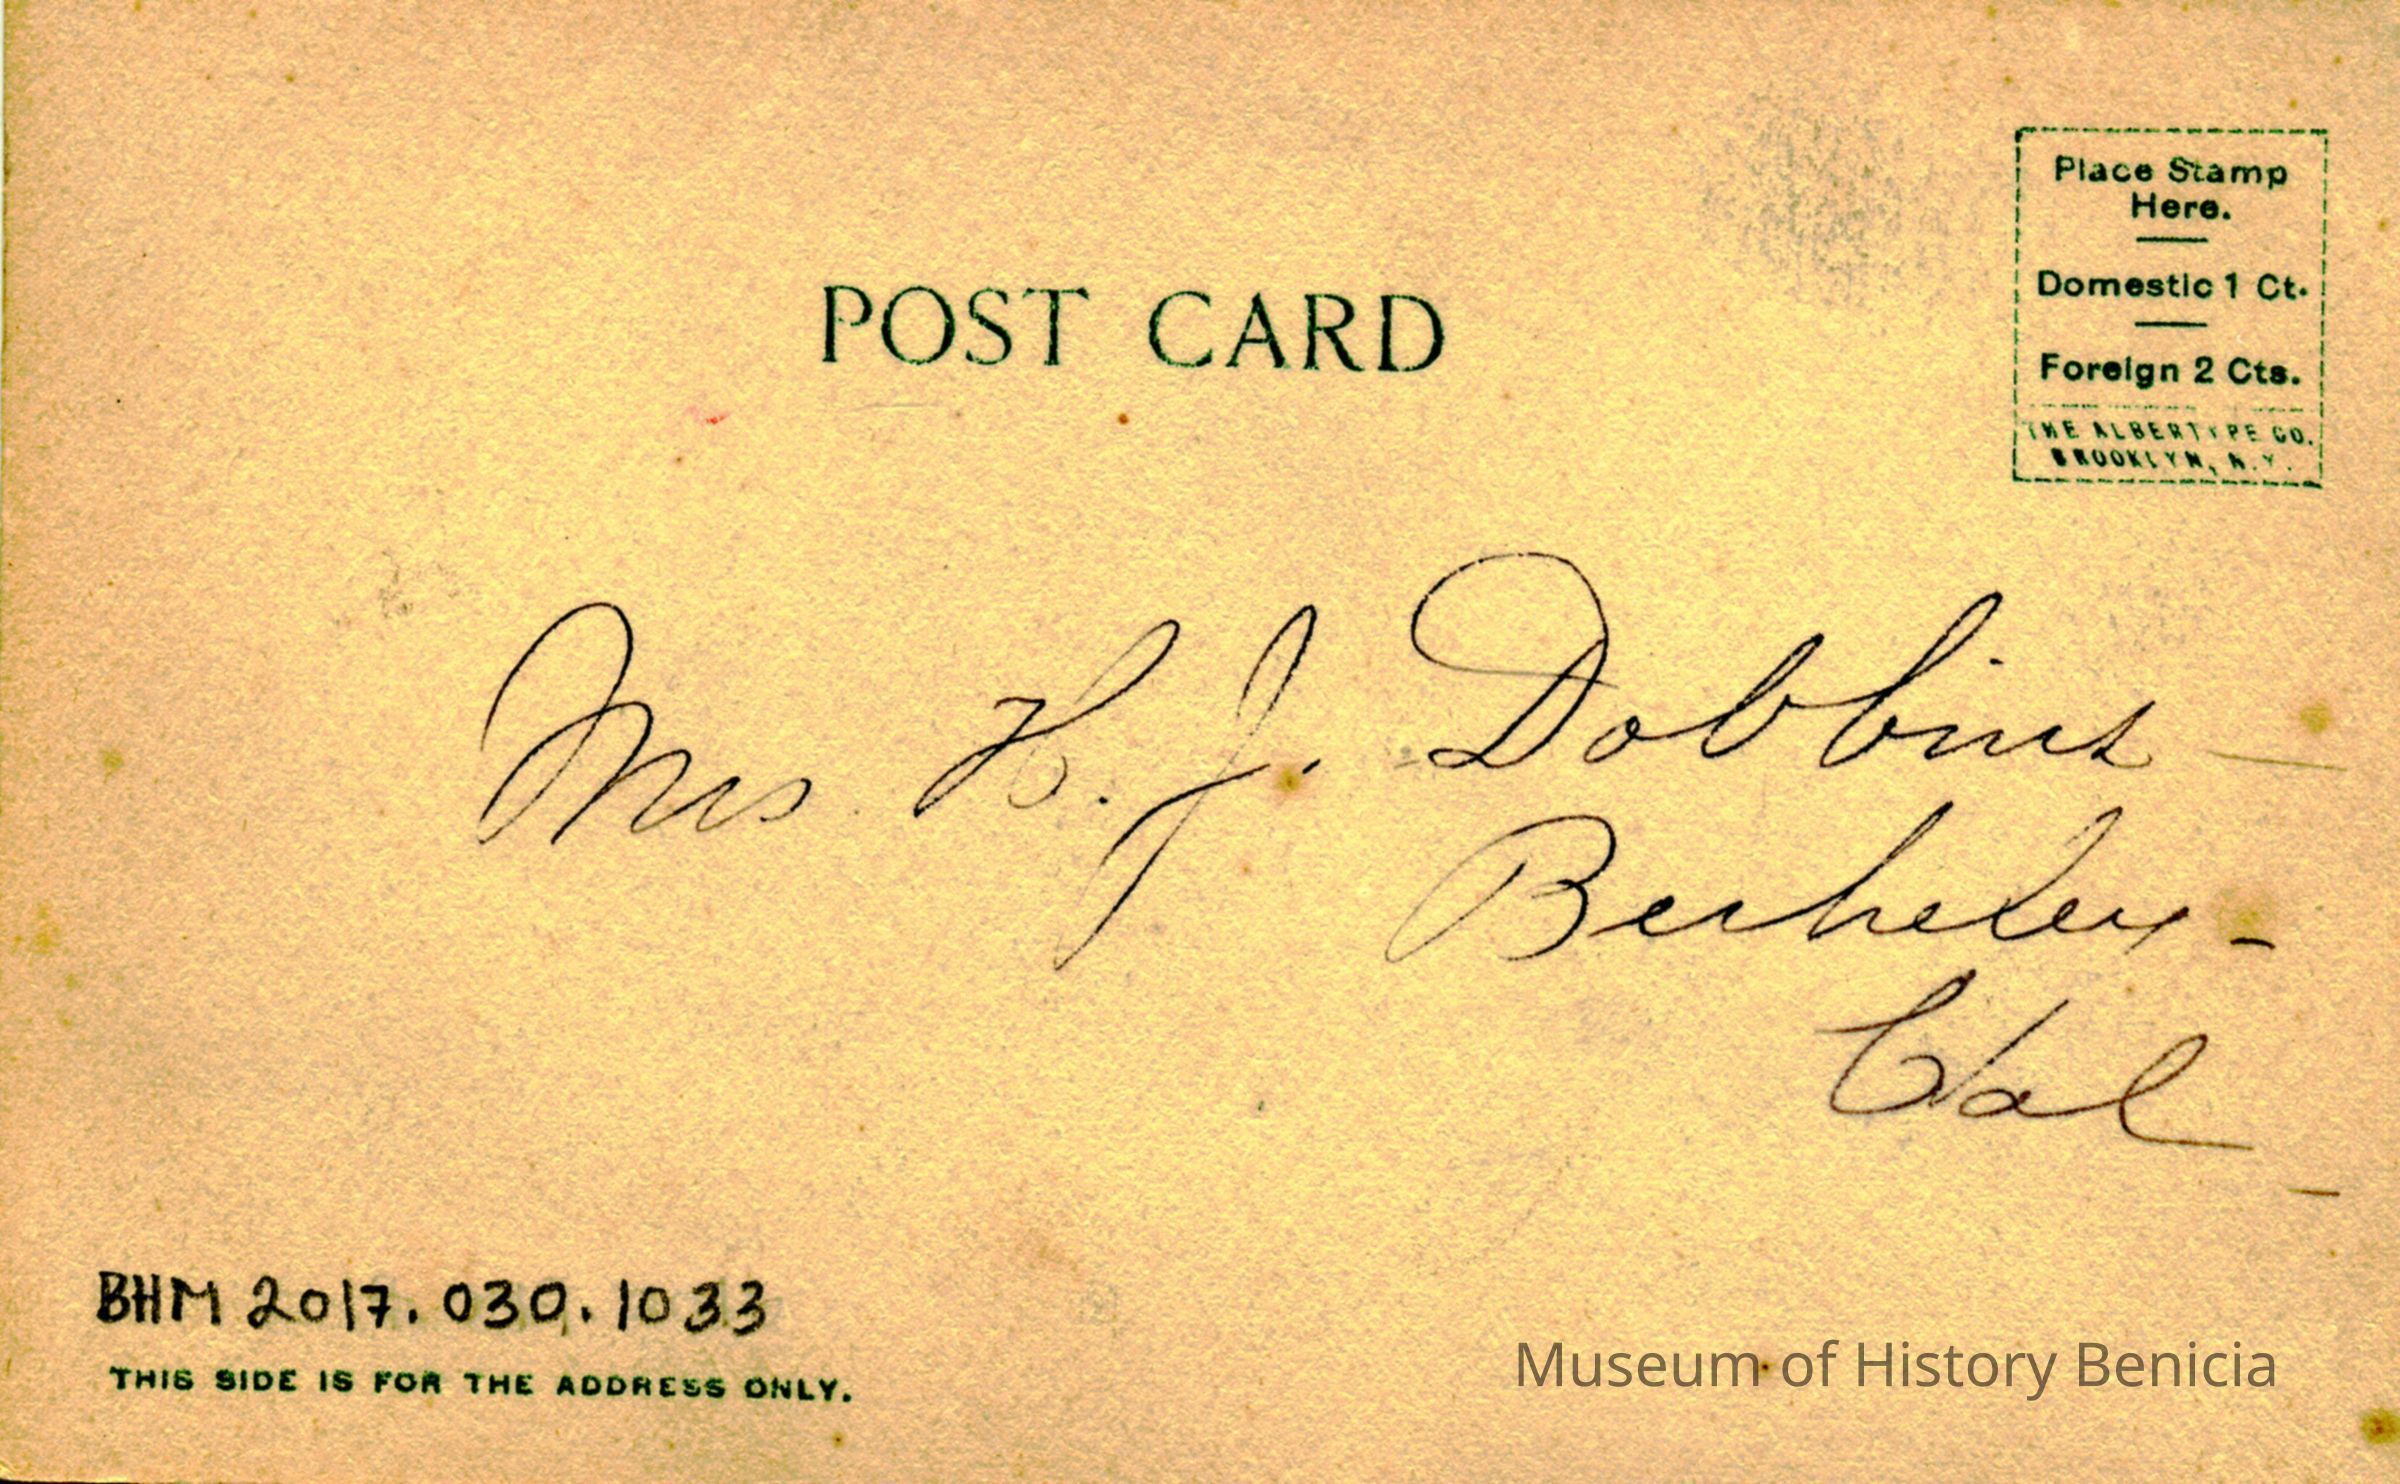 POST CARD
Place Stamp
Here.
Domestic 1 Ct.
Foreign 2 Cts.
THE ALBERTYPE CO.
BROOKLYN, N.Y.
Mrs H. J. Dobbins
Berkeley -
Cal
BHM 2017.030.1033
THIS SIDE IS FOR THE ADDRESS ONLY.
Museum of History Benicia